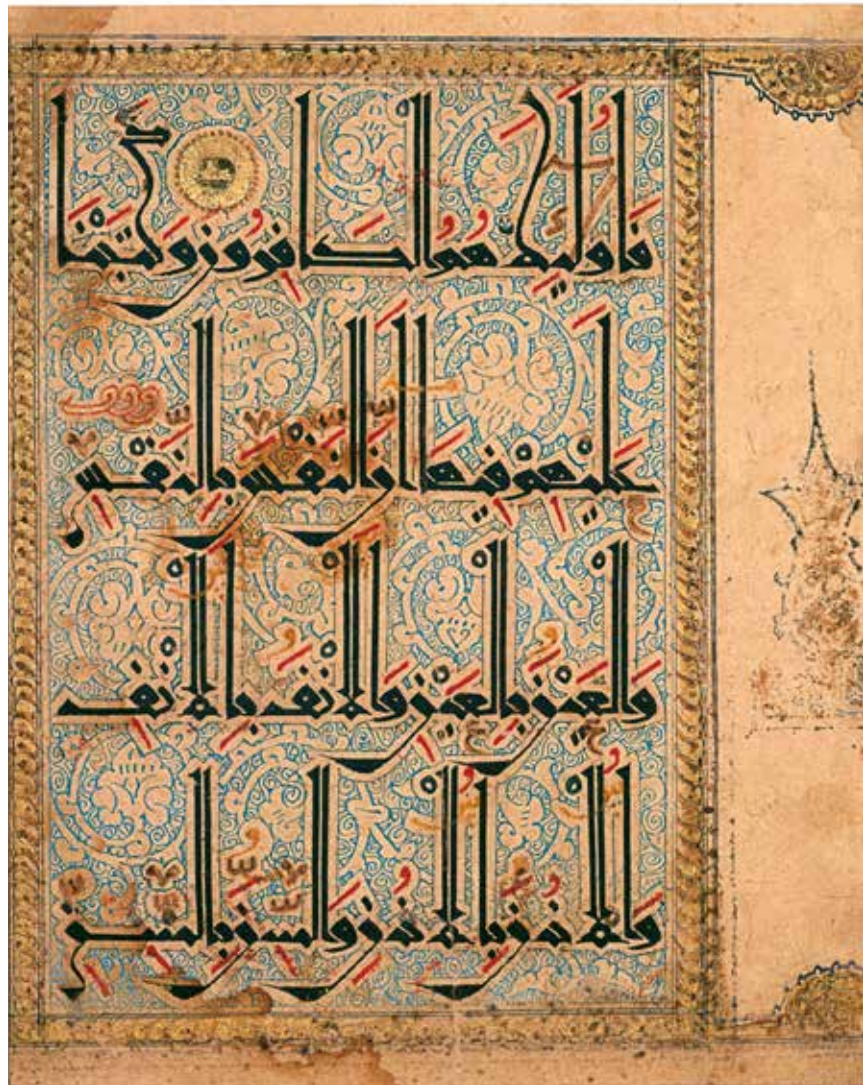 فَأُولَئِكَ هُمُ الْكَافِرُونَ وَكَتَبْنَا
عَلَيْهِمْ فِيهَا أَنَّ النَّفْسَ بِالنَّفْسِ
وَالْعَيْنَ بِالْعَيْنِ وَالْأَنْفَ بِالْأَنْفِ
وَالْأُذُنَ بِالْأُذُنِ وَالسِّنَّ بِالسِّنِّ